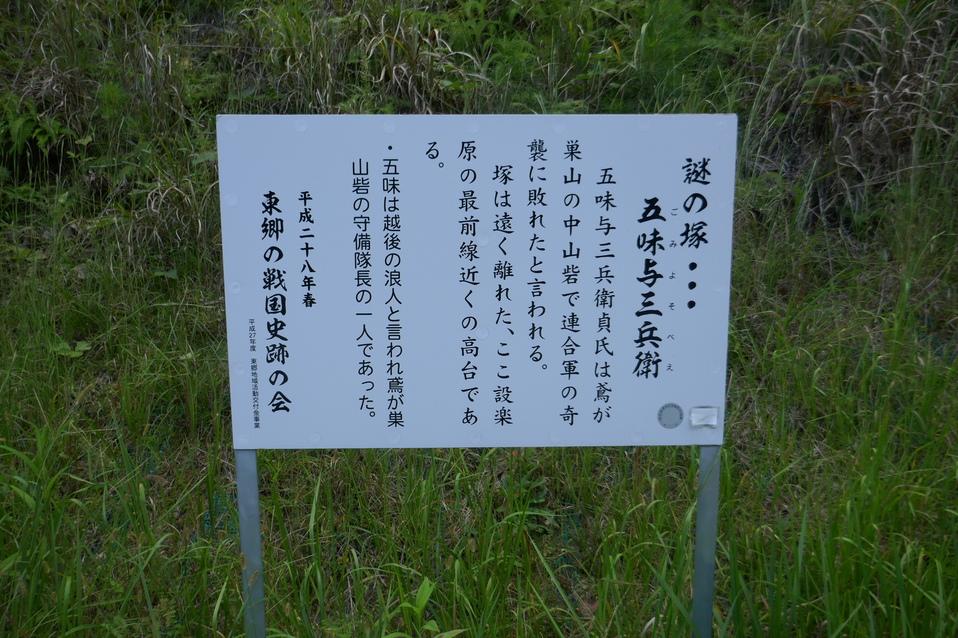 謎の塚・・・
五味与三兵衛
ごみよそべえ
五味与三兵衛貞氏は鳶が
巣山の中山砦で連合軍の奇
襲に敗れたと言われる。
塚は遠く離れた、ここ設楽
原の最前線近くの高台であ
る。
・五味は越後の浪人と言われ鳶が巣
山砦の守備隊長の一人であった。
平成二十八年春
東郷の戦国史跡の会
平成27年度 東郷地域活動交付金事業